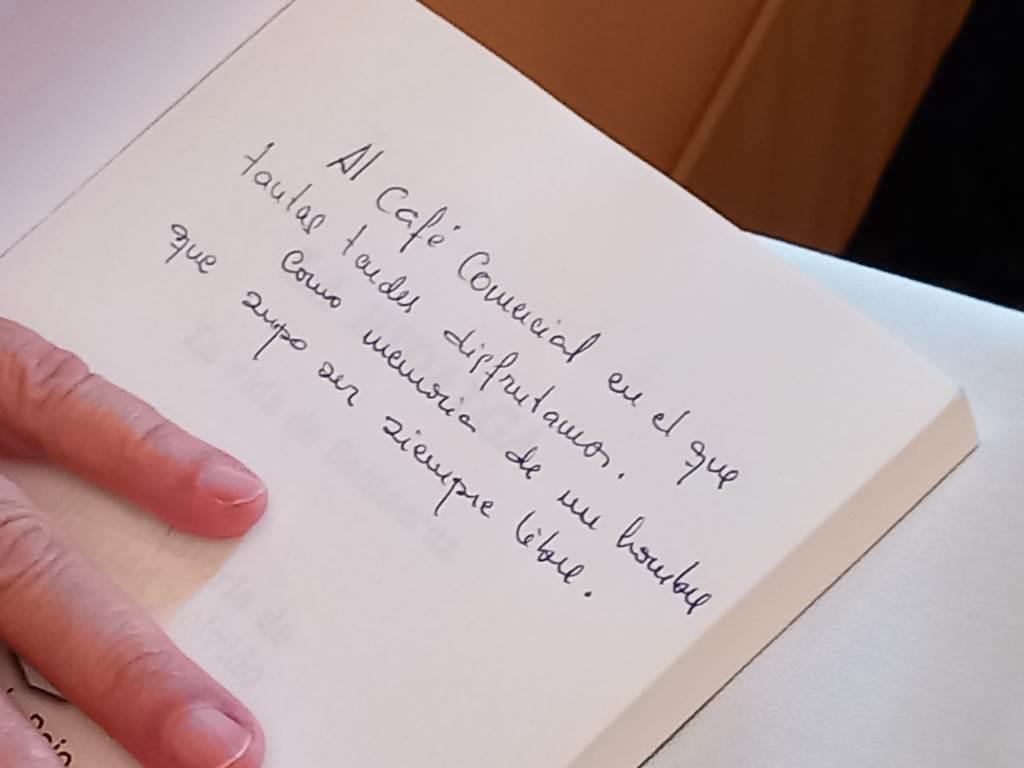 Al Café Comercial en el que
tantas tardes disfrutamos.
Como memoria de un hombre
que supo ser siempre libre.